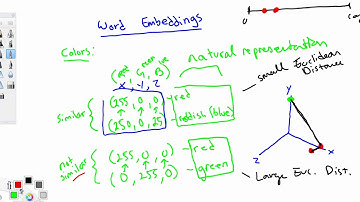 Word Embeddings
Colors:
natural representation
(R, G, B)
X, Y, Z
similar
(255, 0, 0) - red
(250, 0, 25) - reddish (blue)
small Euclidean
Distance
not
similar
(255, 0, 0) - red
(0, 255, 0) - green
Large Euc. Dist.
y
x
z
0